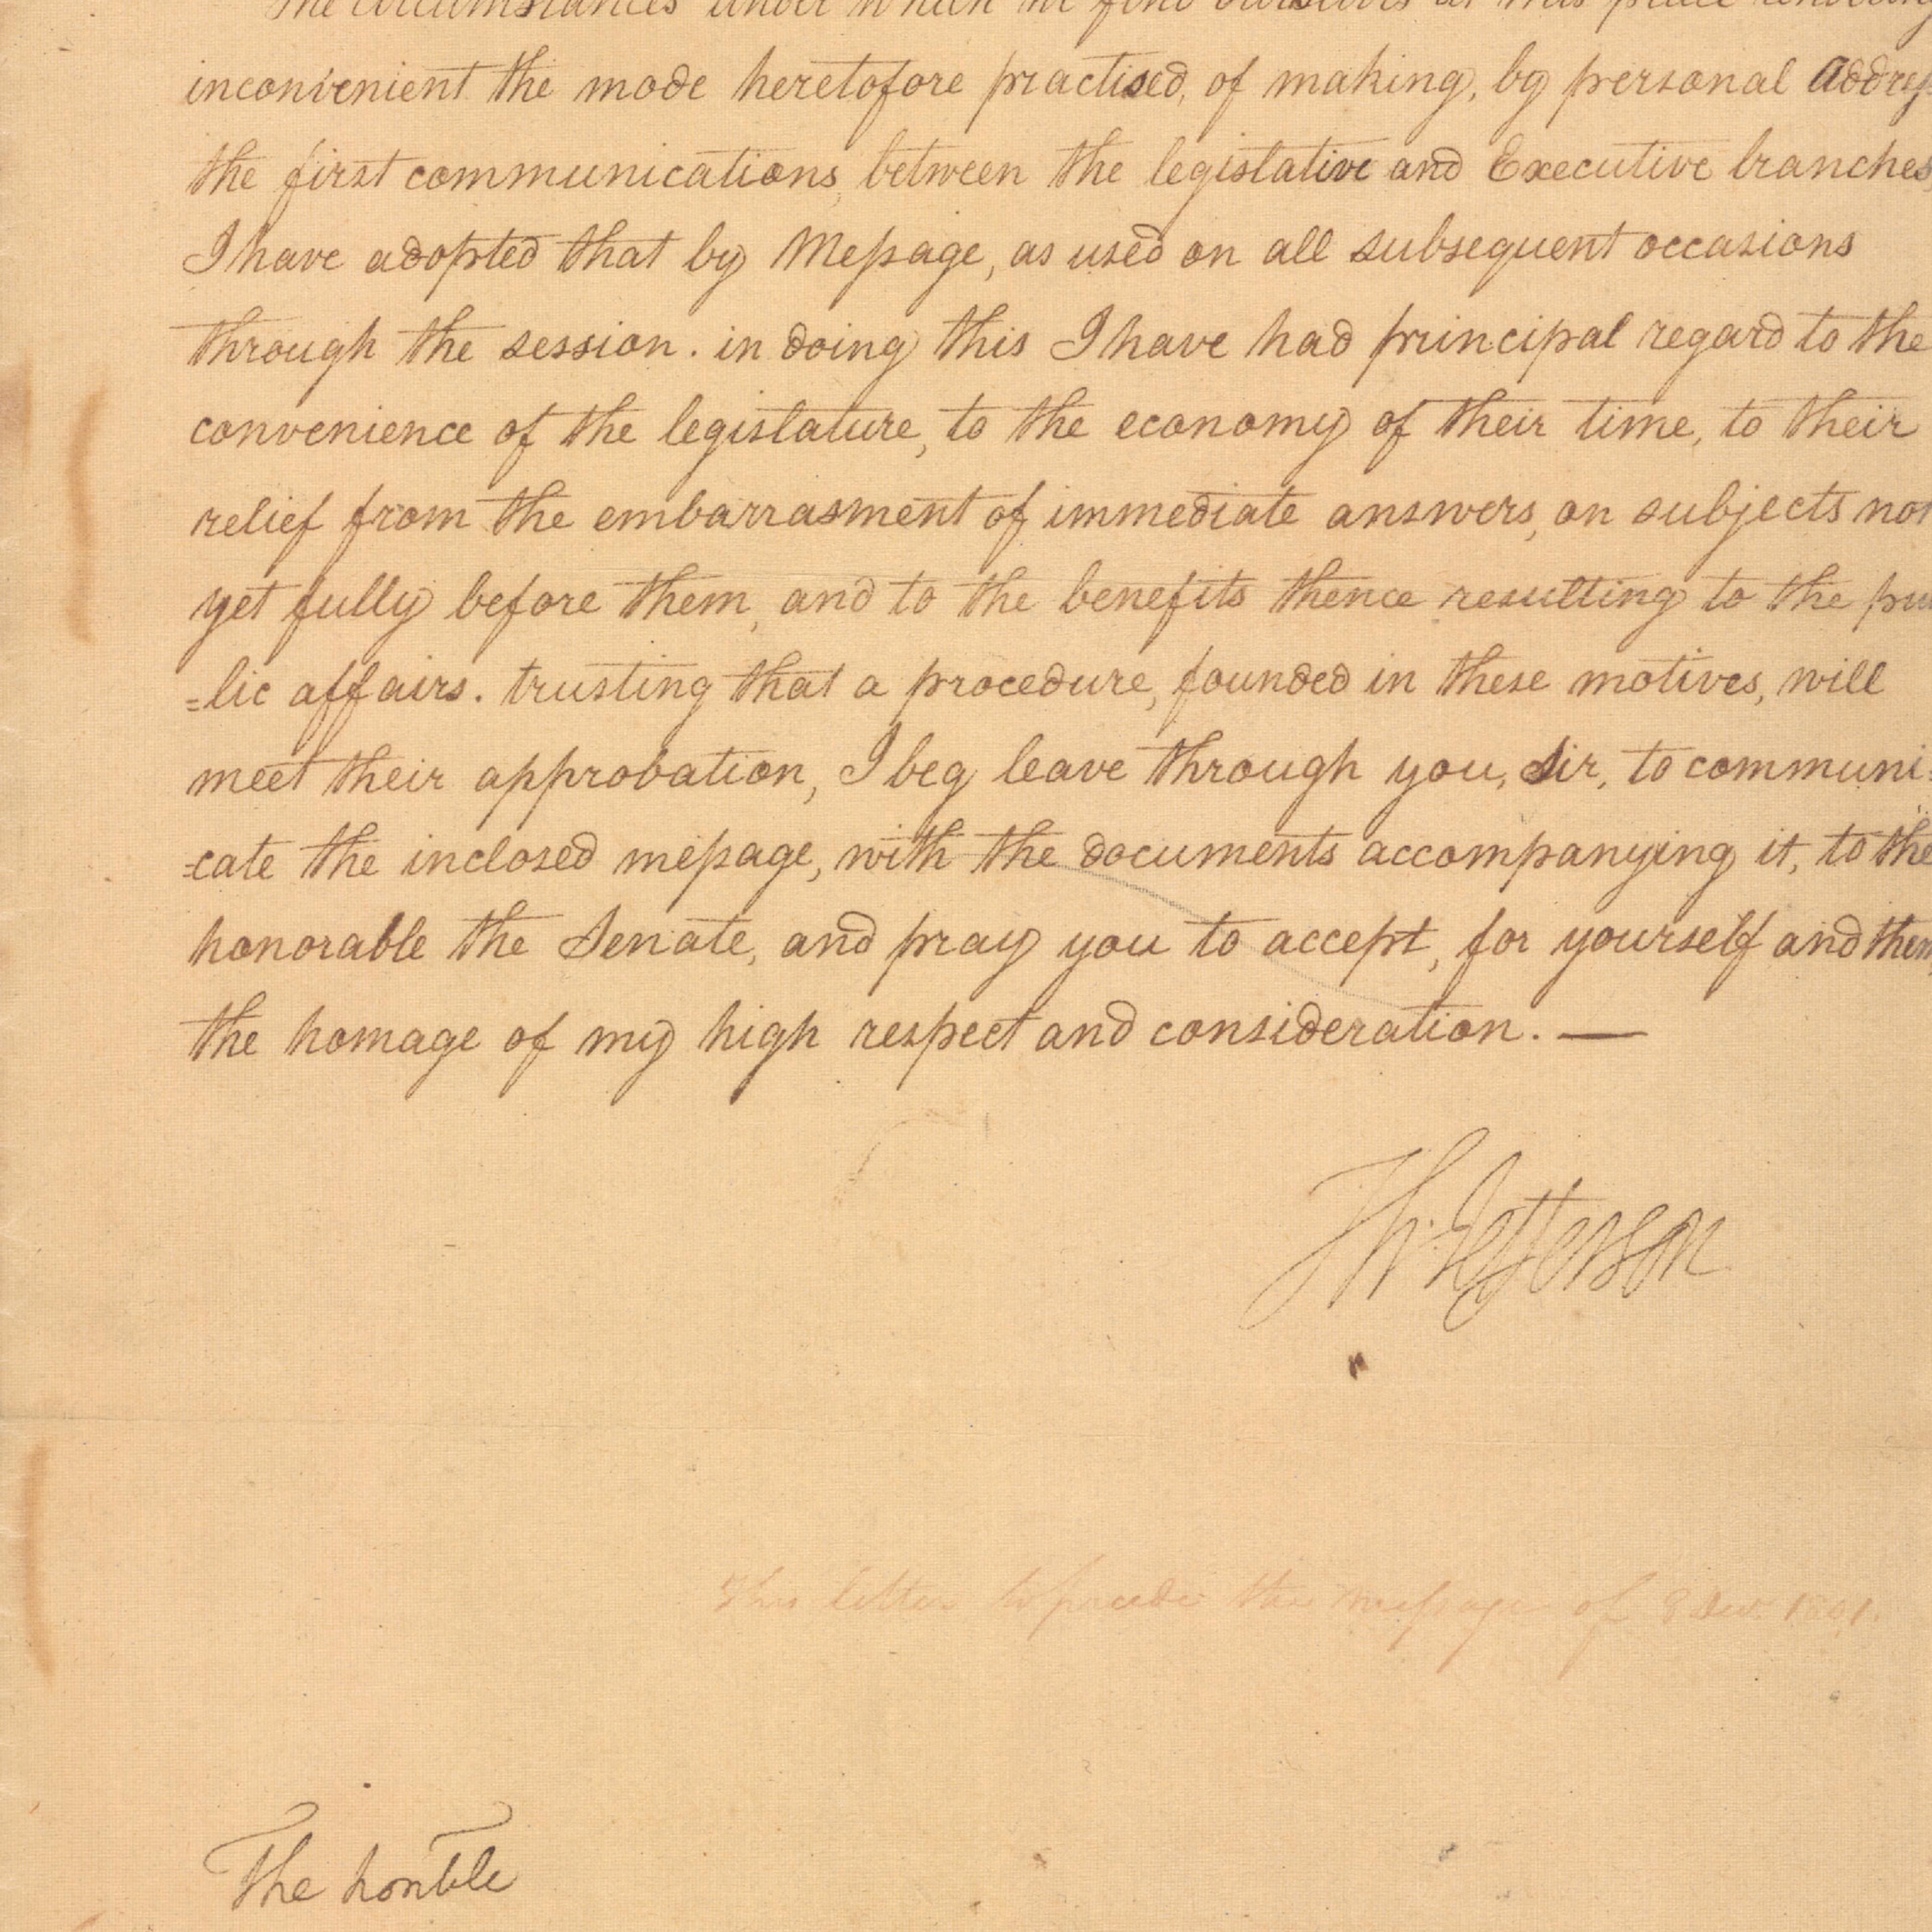 The circumstances under which we find ourselves at this place rendering
inconvenient the mode heretofore practised, of making, by personal address
the first communications, between the legislative and Executive branches
I have adopted that by Message, as used on all subsequent occasions
through the session. in doing this I have had principal regard to the
convenience of the legislature, to the economy of their time, to their
relief from the embarrasment of immediate answers, on subjects not
yet fully before them, and to the benefits thence resulting to the pu
=lic affairs. trusting that a procedure, founded in these motives, will
meet their approbation, I beg leave through you, Sir, to communi=
=cate the inclosed message, with the documents accompanying it, to the
honorable the Senate, and pray you to accept, for yourself and them,
the homage of my high respect and consideration. —
Th: Jefferson
This letter to precede the message of 8 Dec. 1801.
The honble